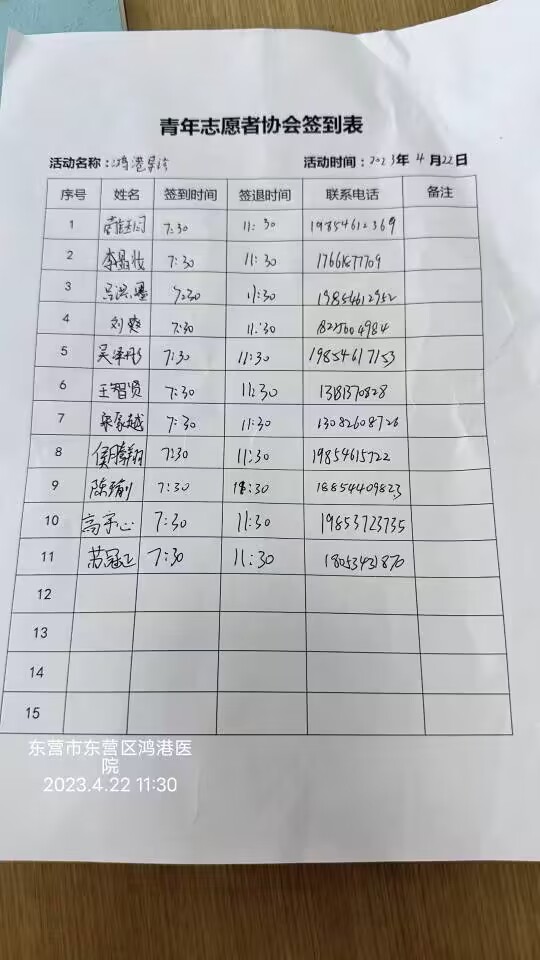 青年志愿者协会签到表
活动名称：鸿港导诊 活动时间：2023年4月22日
序号 姓名 签到时间 签退时间 联系电话 备注
1 7:30 11:30 19854612369
2 李晶妆 7:30 11:30
3 7:30 11:30 19854612952
4 刘爽 7:30 11:30 18225604984
5 吴泽彤 7:30 11:30 19854617153
6 王智贤 7:30 11:30 13181370828
7 7:30 11:30 13082608726
8 侯腾翔 7:30 11:30 19854615722
9 陈 7:30 11:30 18854409823
10 高宇心 7:30 11:30 19853723735
11 苏冠正 7:30 11:30 18053431870
12
13
14
15
东营市东营区鸿港医
院
2023.4.22 11:30